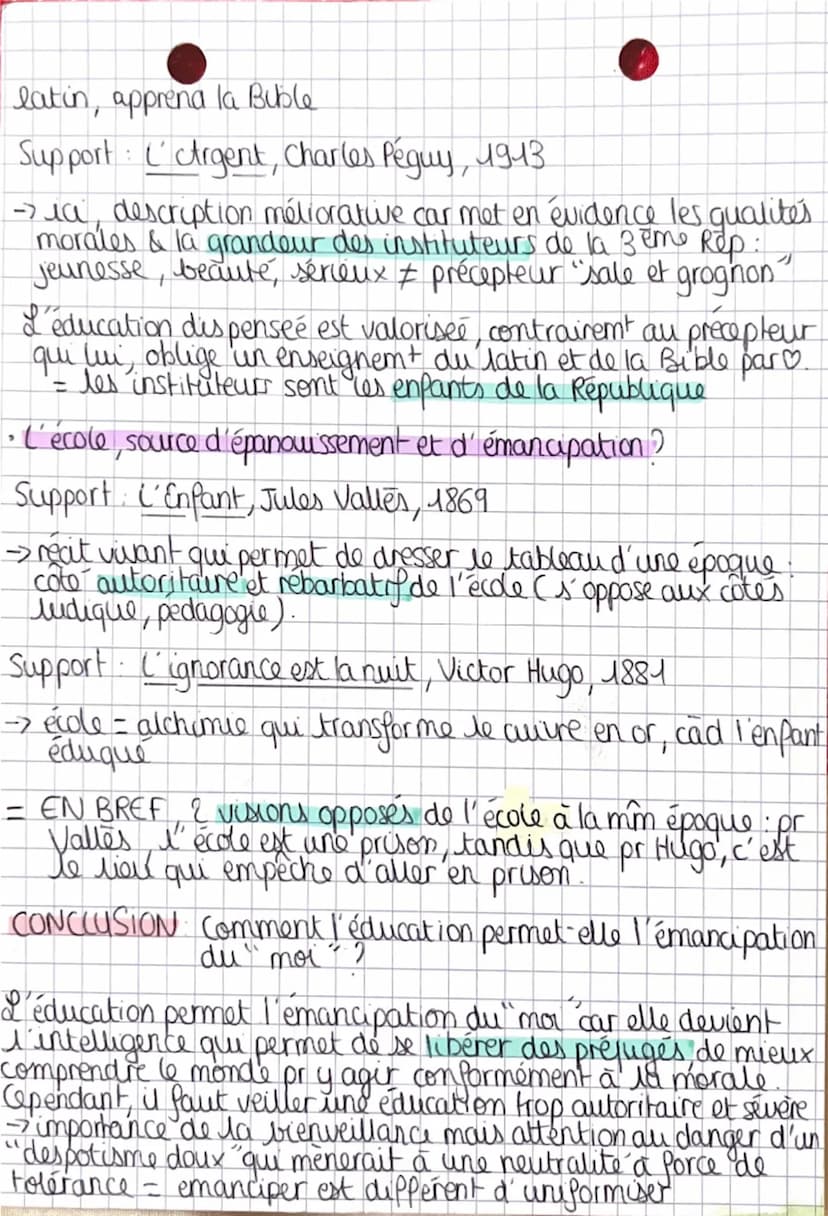 latin, apprend la Bible
Support : L'Argent, Charles Péguy, 1913
-> ici, description méliorative car met en évidence les qualités
morales & la grandeur des instituteurs de la 3ème Rép :
jeunesse, beauté, sérieux ≠ précepteur "sale et grognon"
L'éducation dispenseé est valoriseé, contrairemt au précepteur
qui lui, oblige un enseignemt du latin et de la Bible par ♡.
= les instituteurs sont les enfants de la République
• L'école, source d'épanouissement et d'émancipation ?
Support : L'Enfant, Jules Vallès, 1869
-> récit vivant qui permet de dresser le tableau d'une époque :
côté autoritaire et rébarbatif de l'école (s'oppose aux côtés
ludique, pédagogie).
Support : L'ignorance est la nuit, Victor Hugo, 1881
-> école = alchimie qui transforme le cuivre en or, càd l'enfant
éduqué
= EN BREF, 2 visions opposés de l'école à la mm̂ époque : pr
Vallès, l'école est une prison, tandis que pr Hugo, c'est
le lieu qui empêche d'aller en prison.
CONCLUSION : Comment l'éducation permet-elle l'émancipation
du "moi" ?
L'éducation permet l'émancipation du "moi" car elle devient
l'intelligence qui permet de se libérer des préjugés de mieux
comprendre le monde pr y agir conformément à la morale.
Cependant, il faut veiller une éducation trop autoritaire et sévère
-> importance de la bienveillance mais attention au danger d'un
"despotisme doux" qui mènerait à une neutralité à force de
tolérance = émanciper est différent d'uniformiser